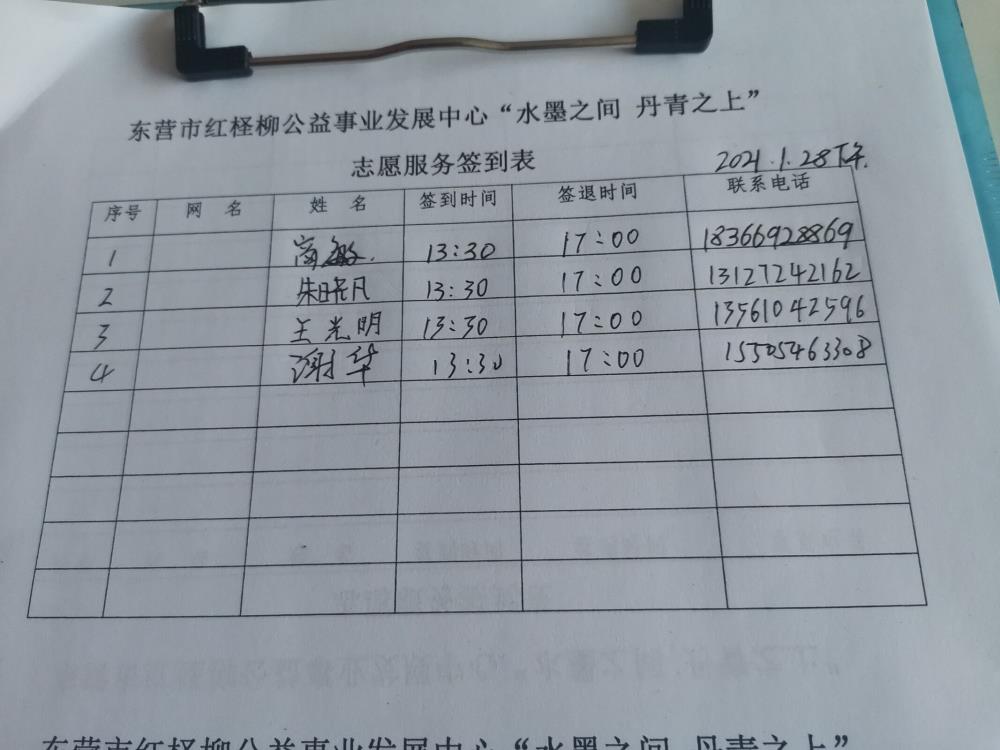 东营市红柽柳公益事业发展中心“水墨之间 丹青之上”
志愿服务签到表 2021.1.28下午.
序号 网 名 姓 名 签到时间 签退时间 联系电话
1 商敏. 13:30 17:00 18366928869
2 朱晓凡 13:30 17:00 13127242162
3 王光明 13:30 17:00 13561042596
4 谢华 13:30 17:00 15505463308
东营市红柽柳公益事业发展中心“水墨之间 丹青之上”